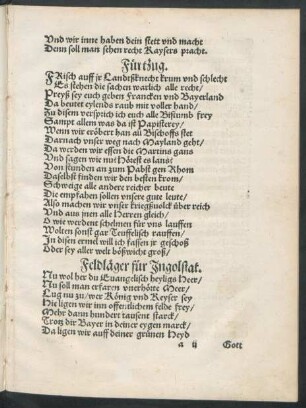 Vnd wir inne haben dein stett vnd macht
Denn soll man sehen recht Kaysers pracht.
Für tzüg.
FRisch auff jr Landtßknecht krum vnd schlecht
Es stehen die sachen warlich alle recht/
Preyß sey euch geben Francken vnd Bayerland
Da beutet eylends raub mit voller hand/
Zu disem versprich ich euch alle Bistumb frey
Sampt allem was da ist Papisterey/
Wenn wir eröbert han all Bischoffs stet
Darnach vnser weg nach Mayland geht/
Da werden wir essen die Martins gans
Vnd sagen wie nu Hörest es lans/
Von stunden an zum Pabst gen Rhom
Daselbst finden wir den besten krom/
Schweige alle andere reicher beute
Die empfahen sollen vnsere gute leute/
Also machen wir vnser kriegßuolck über reich
Vnd aus jnen alle Herren gleich/
O wie werdent schelmen für vns lauffen
Wolten sonst gar Teuffelisch rauffen/
In disen ermel will ich fassen jr geschoß
Oder sey aller welt bößwicht groß/
Feldläger für Jngolstat.
Nu wol her du Euangelisch heyligs Heer/
Nu soll man erfaren vnerhörte Meer/
Lug nu zu/wer König vnd Keyser sey
Hie ligen wir inn offentlichem felde frey/
Mehr dann hundert tausent starck/
Trotz dir Bayer in deiner eygen marck/
Da ligen wir auff deiner grünen Heyd
a ij Gott